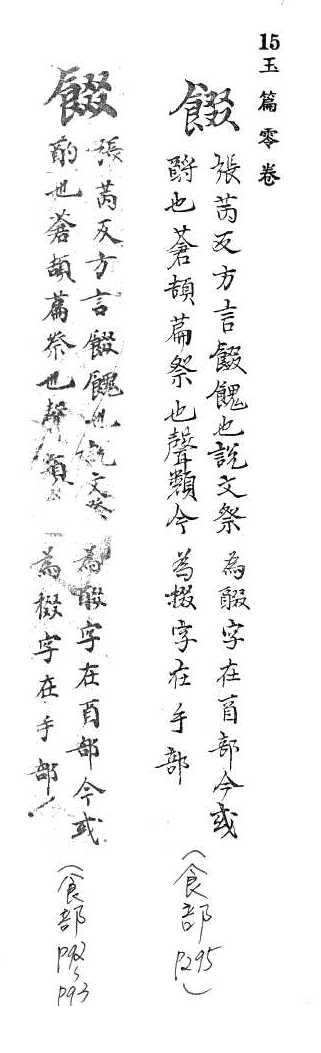 15 玉篇零卷
餟
張芮反方言餟餽也說文祭
酹也蒼頡篇祭也聲類今
為醊字在酉部今或
為掇字在手部
(食部 P295)
餟
張芮反方言餟餽也說文祭
酹也蒼頡篇祭也聲類
為醊字在酉部今或
為掇字在手部
(食部 P92、P93)